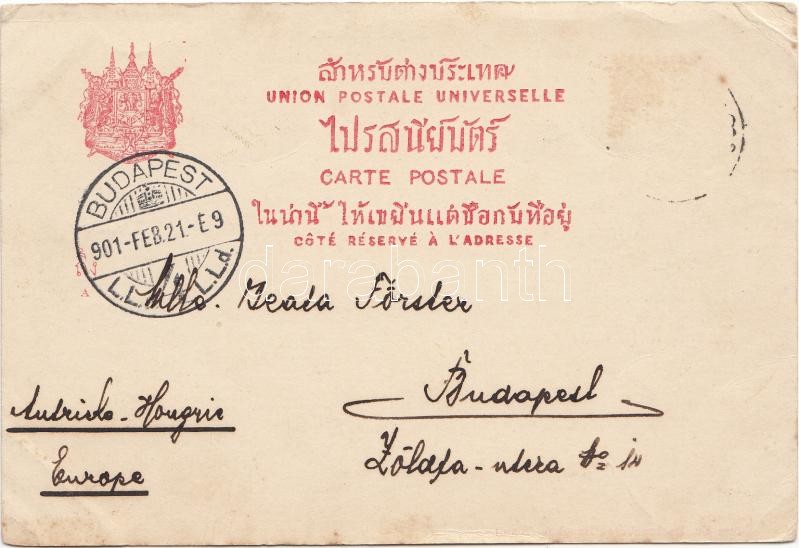 สำหรับต่างประเทศ
UNION POSTALE UNIVERSELLE
ไปรสนียบัตร์
CARTE POSTALE
ในน่านี้ ให้เขียนแต่ชื่อกับที่อยู่
CÔTÉ RÉSERVÉ À L'ADRESSE
BUDAPEST
901-FEB.21.-E 9
L.L.d.
A
Mlle. Beata Förster
Budapest
Zöldfa-utcza
Autriche-Hongrie
Europe
darabanth